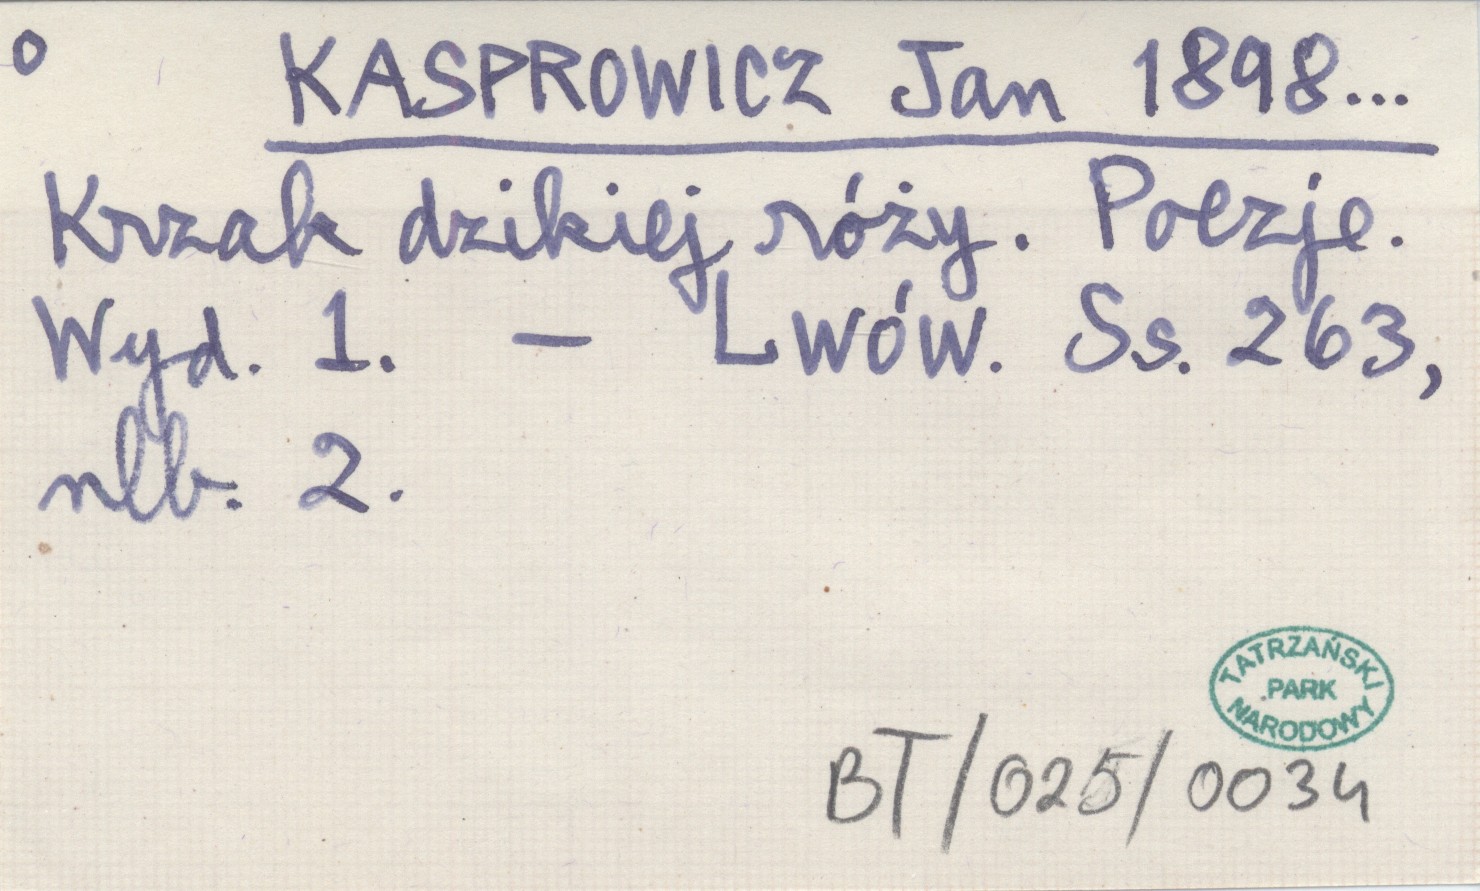 o KASPROWICZ Jan 1898...
Krzak dzikiej róży. Poezje.
Wyd. 1. — Lwów. Ss. 263,
nlb. 2.
TATRZAŃSKI
PARK
NARODOWY
BT/025/0034